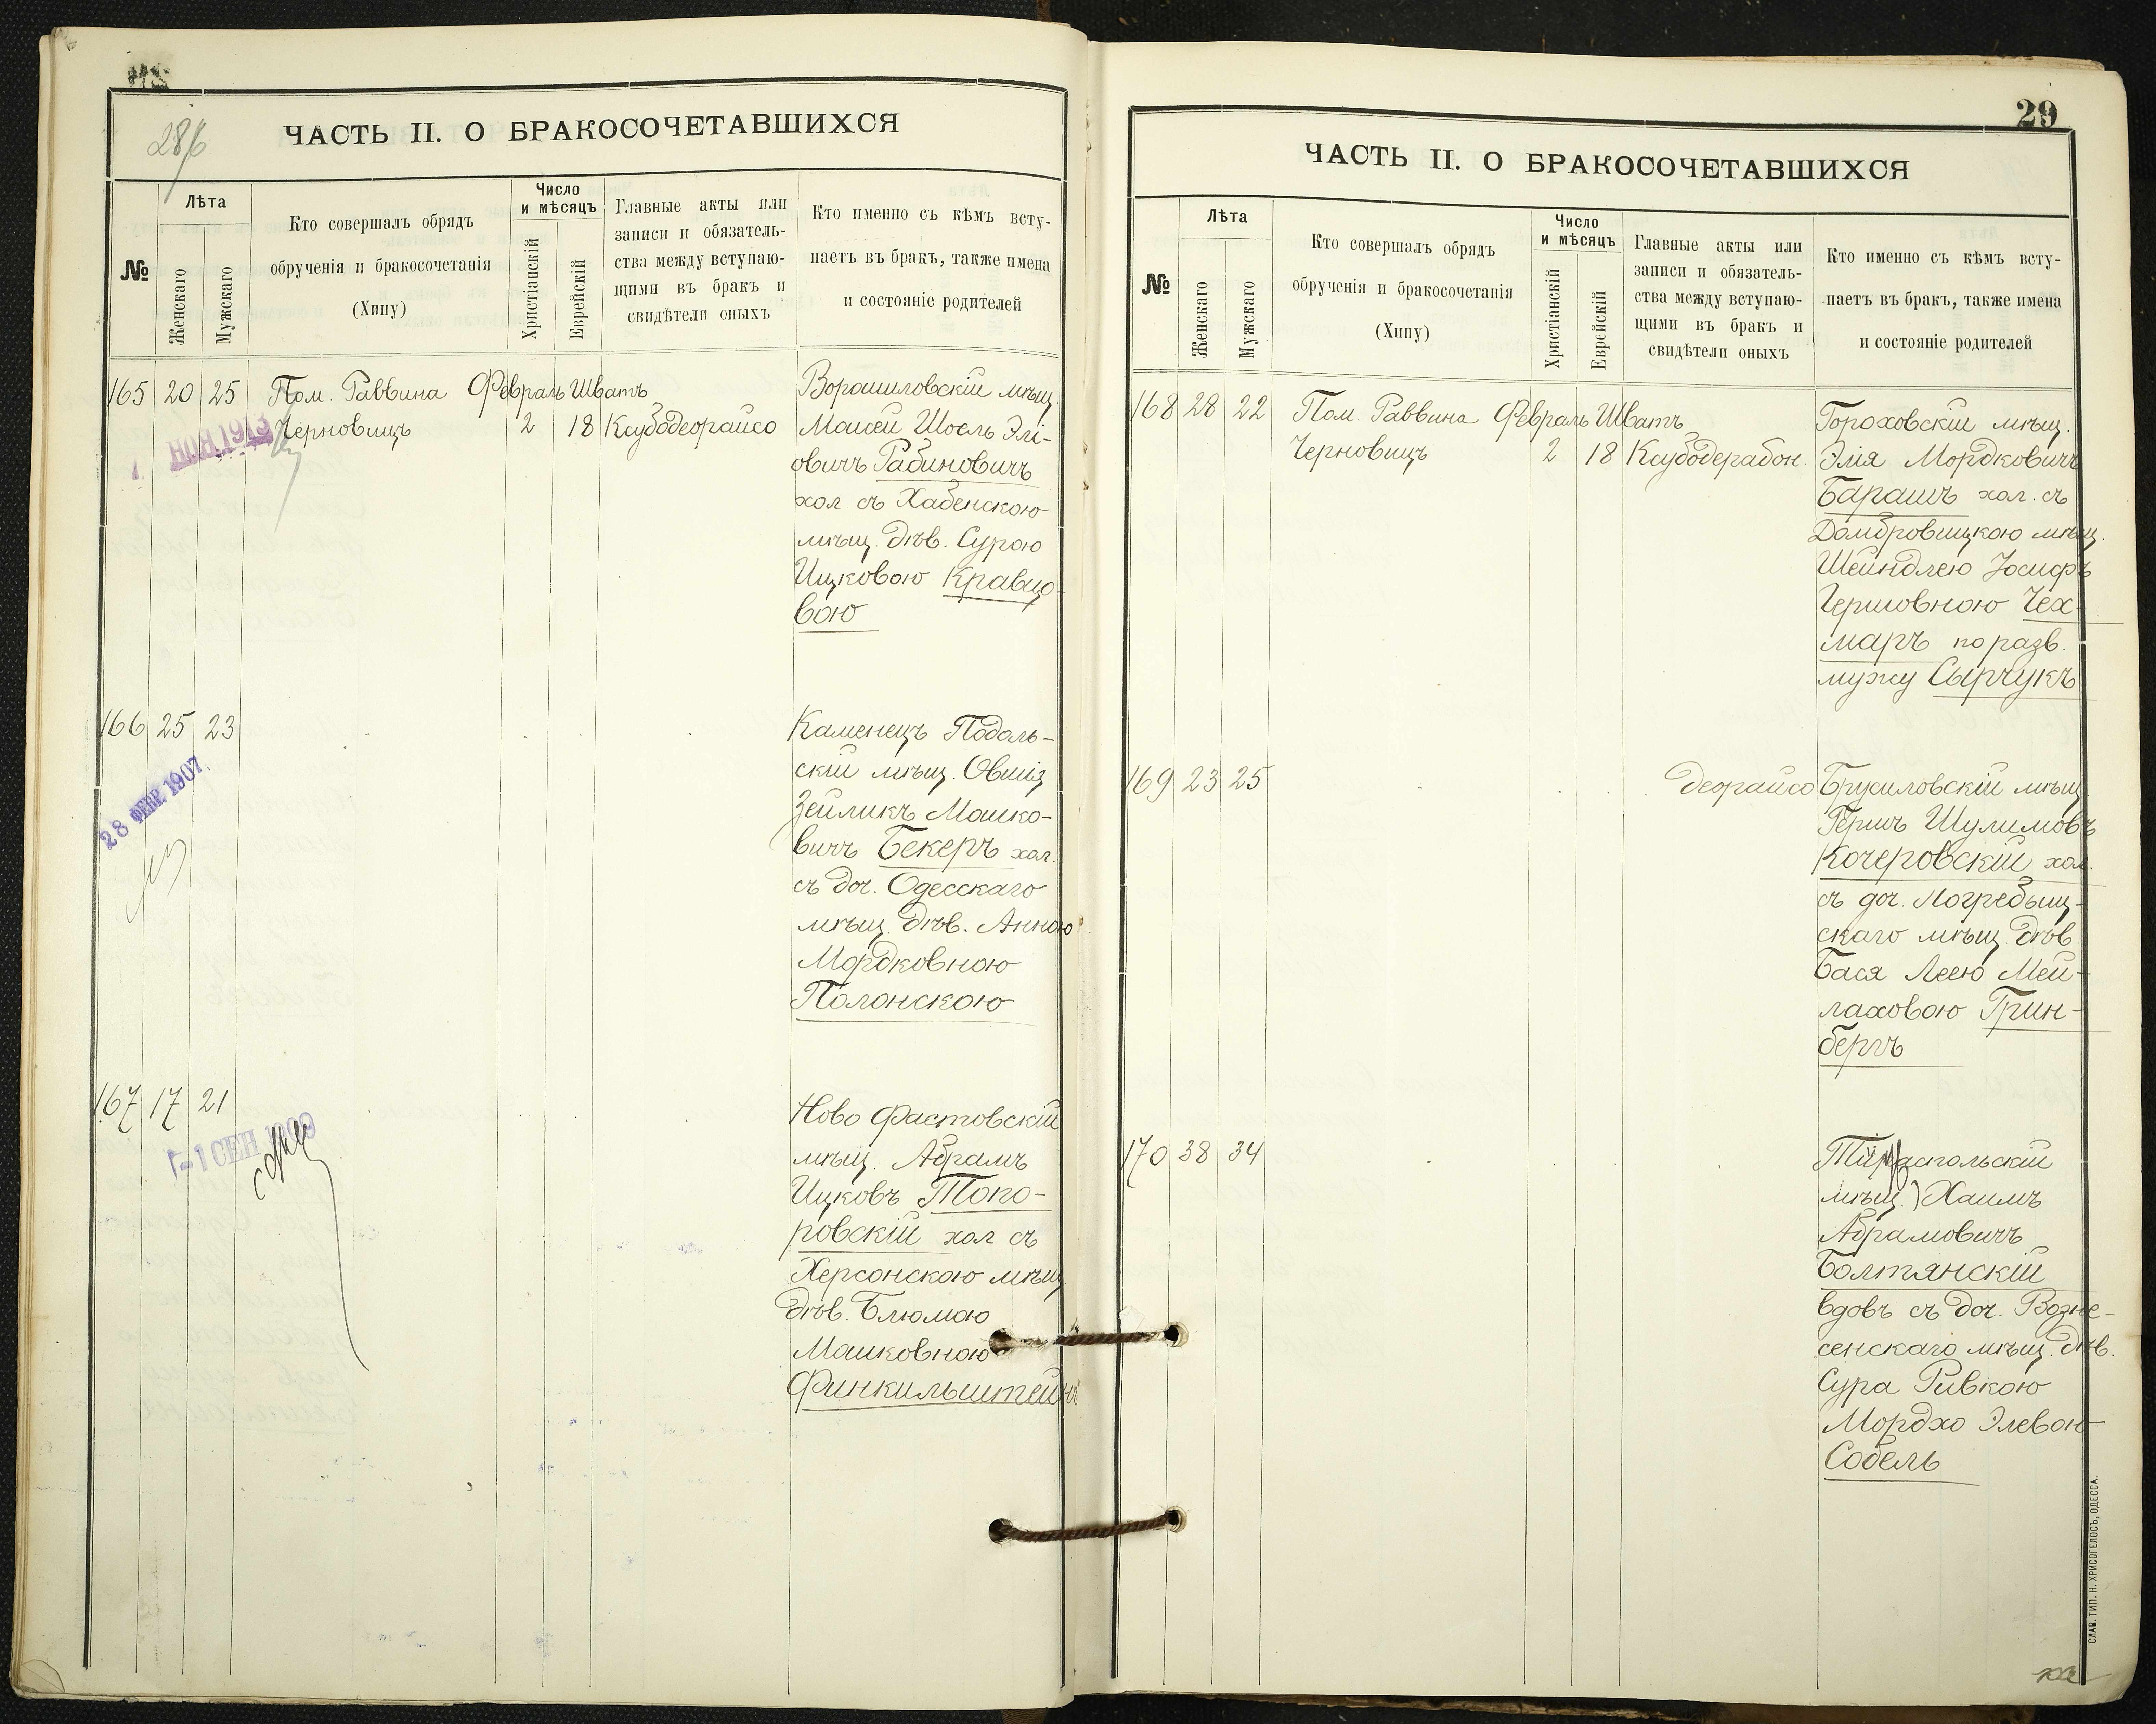 28/б
ЧАСТЬ II. О БРАКОСОЧЕТАВШИХСЯ
№
Лѣта
Женскаго
Мужскаго
Кто совершалъ обрядъ
обрученія и бракосочетанія
(Хипу)
Число
и мѣсяцъ
Христіанскій
Еврейскій
Главные акты или
записи и обязатель-
ства между вступаю-
щими въ бракъ и
свидѣтели оныхъ
Кто именно съ кѣмъ всту-
паетъ въ бракъ, также имена
и состояніе родителей
165 20 25 Пом. Раввина Февраль Шватъ
Черновицъ 2 18 Ксубодеорайсо
НОЯ 1913
Ворошиловскій мѣщ.
Моисей Шоэль Элі-
овичъ Рабиновичъ
хол. съ Хабенскою
мѣщ. дѣв. Сурою
Ицковою Кравцо-
вою
166 25 23
28 ФЕВР. 1907.
Каменецъ Подоль-
скій мѣщ. Овшіз
Зейликъ Мошко-
вичъ Бекеръ хол.
съ доч. Одесскаго
мѣщ. дѣв. Анною
Мордковною
Полонскою
167 17 21
-1 СЕН 1909
Ново Фастовскій
мѣщ. Абрамъ
Ицковъ Топо-
ровскій хол съ
Херсонскою мѣщ
дѣв. Блюмою
Мошковною
Финкильштейнъ
29
ЧАСТЬ II. О БРАКОСОЧЕТАВШИХСЯ
№
Лѣта
Женскаго
Мужскаго
Кто совершалъ обрядъ
обрученія и бракосочетанія
(Хипу)
Число
и мѣсяцъ
Христіанскій
Еврейскій
Главные акты или
записи и обязатель-
ства между вступаю-
щими въ бракъ и
свидѣтели оныхъ
Кто именно съ кѣмъ всту-
паетъ въ бракъ, также имена
и состояніе родителей
168 28 22 Пом. Раввина Февраль Шватъ
Черновицъ 2 18 Ксубодерабон.
Гороховскій мѣщ.
Элія Мордковичъ
Барашъ хол. съ
Домбровицкою мѣщ.
Шейндлею Іосифъ
Гершовною Чех-
маръ по разв.
мужу Сырчукъ
169 23 25
деорайсо
Брусиловскій мѣщ
Гершъ Шулимовъ
Кочеровскій хол.
съ доч. Погребыщ-
скаго мѣщ. дѣв
Бася Леею Мей-
лаховою Грин-
бергъ
170 38 34
Тираспольскій
мѣщ.) Хаимъ
Абрамовичъ
Болтянскій
вдовъ съ доч. Возне-
сенскаго мѣщ. дѣв.
Сура Ривкою
Мордхо Элевою
Собель
СЛАВ. ТИП. Н. ХРИСОГЕЛОСЪ, ОДЕССА.